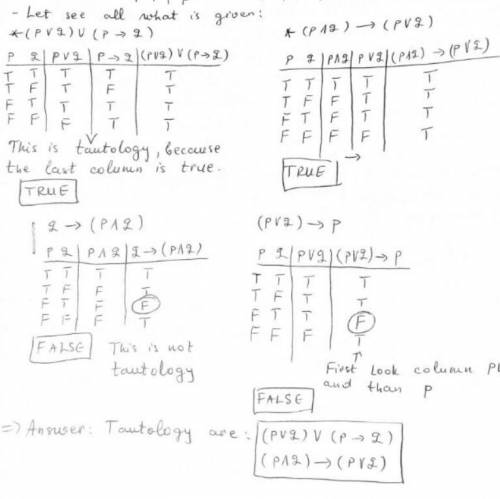 - Let see all what is given:
*(P∨Q)∨(P→Q)
P Q P∨Q P→Q (P∨Q)∨(P→Q)
T T T T T
T F T F T
F T T T T
F F F T T
This is tautology, because
the last column is true.
TRUE
*(P∧Q)→(P∨Q)
P Q P∧Q P∨Q (P∧Q)→(P∨Q)
T T T T T
T F F T T
F T F T T
F F F F T
→
TRUE
Q→(P∧Q)
P Q P∧Q Q→(P∧Q)
T T T T
T F F T
F T F F
F F F T
FALSE This is not
tautology
(P∨Q)→P
P Q P∨Q (P∨Q)→P
T T T T
T F T T
F T T F
F F F T
First look column
and than P
FALSE
=> Answer: Tautology are: (P∨Q)∨(P→Q)
(P∧Q)→(P∨Q)